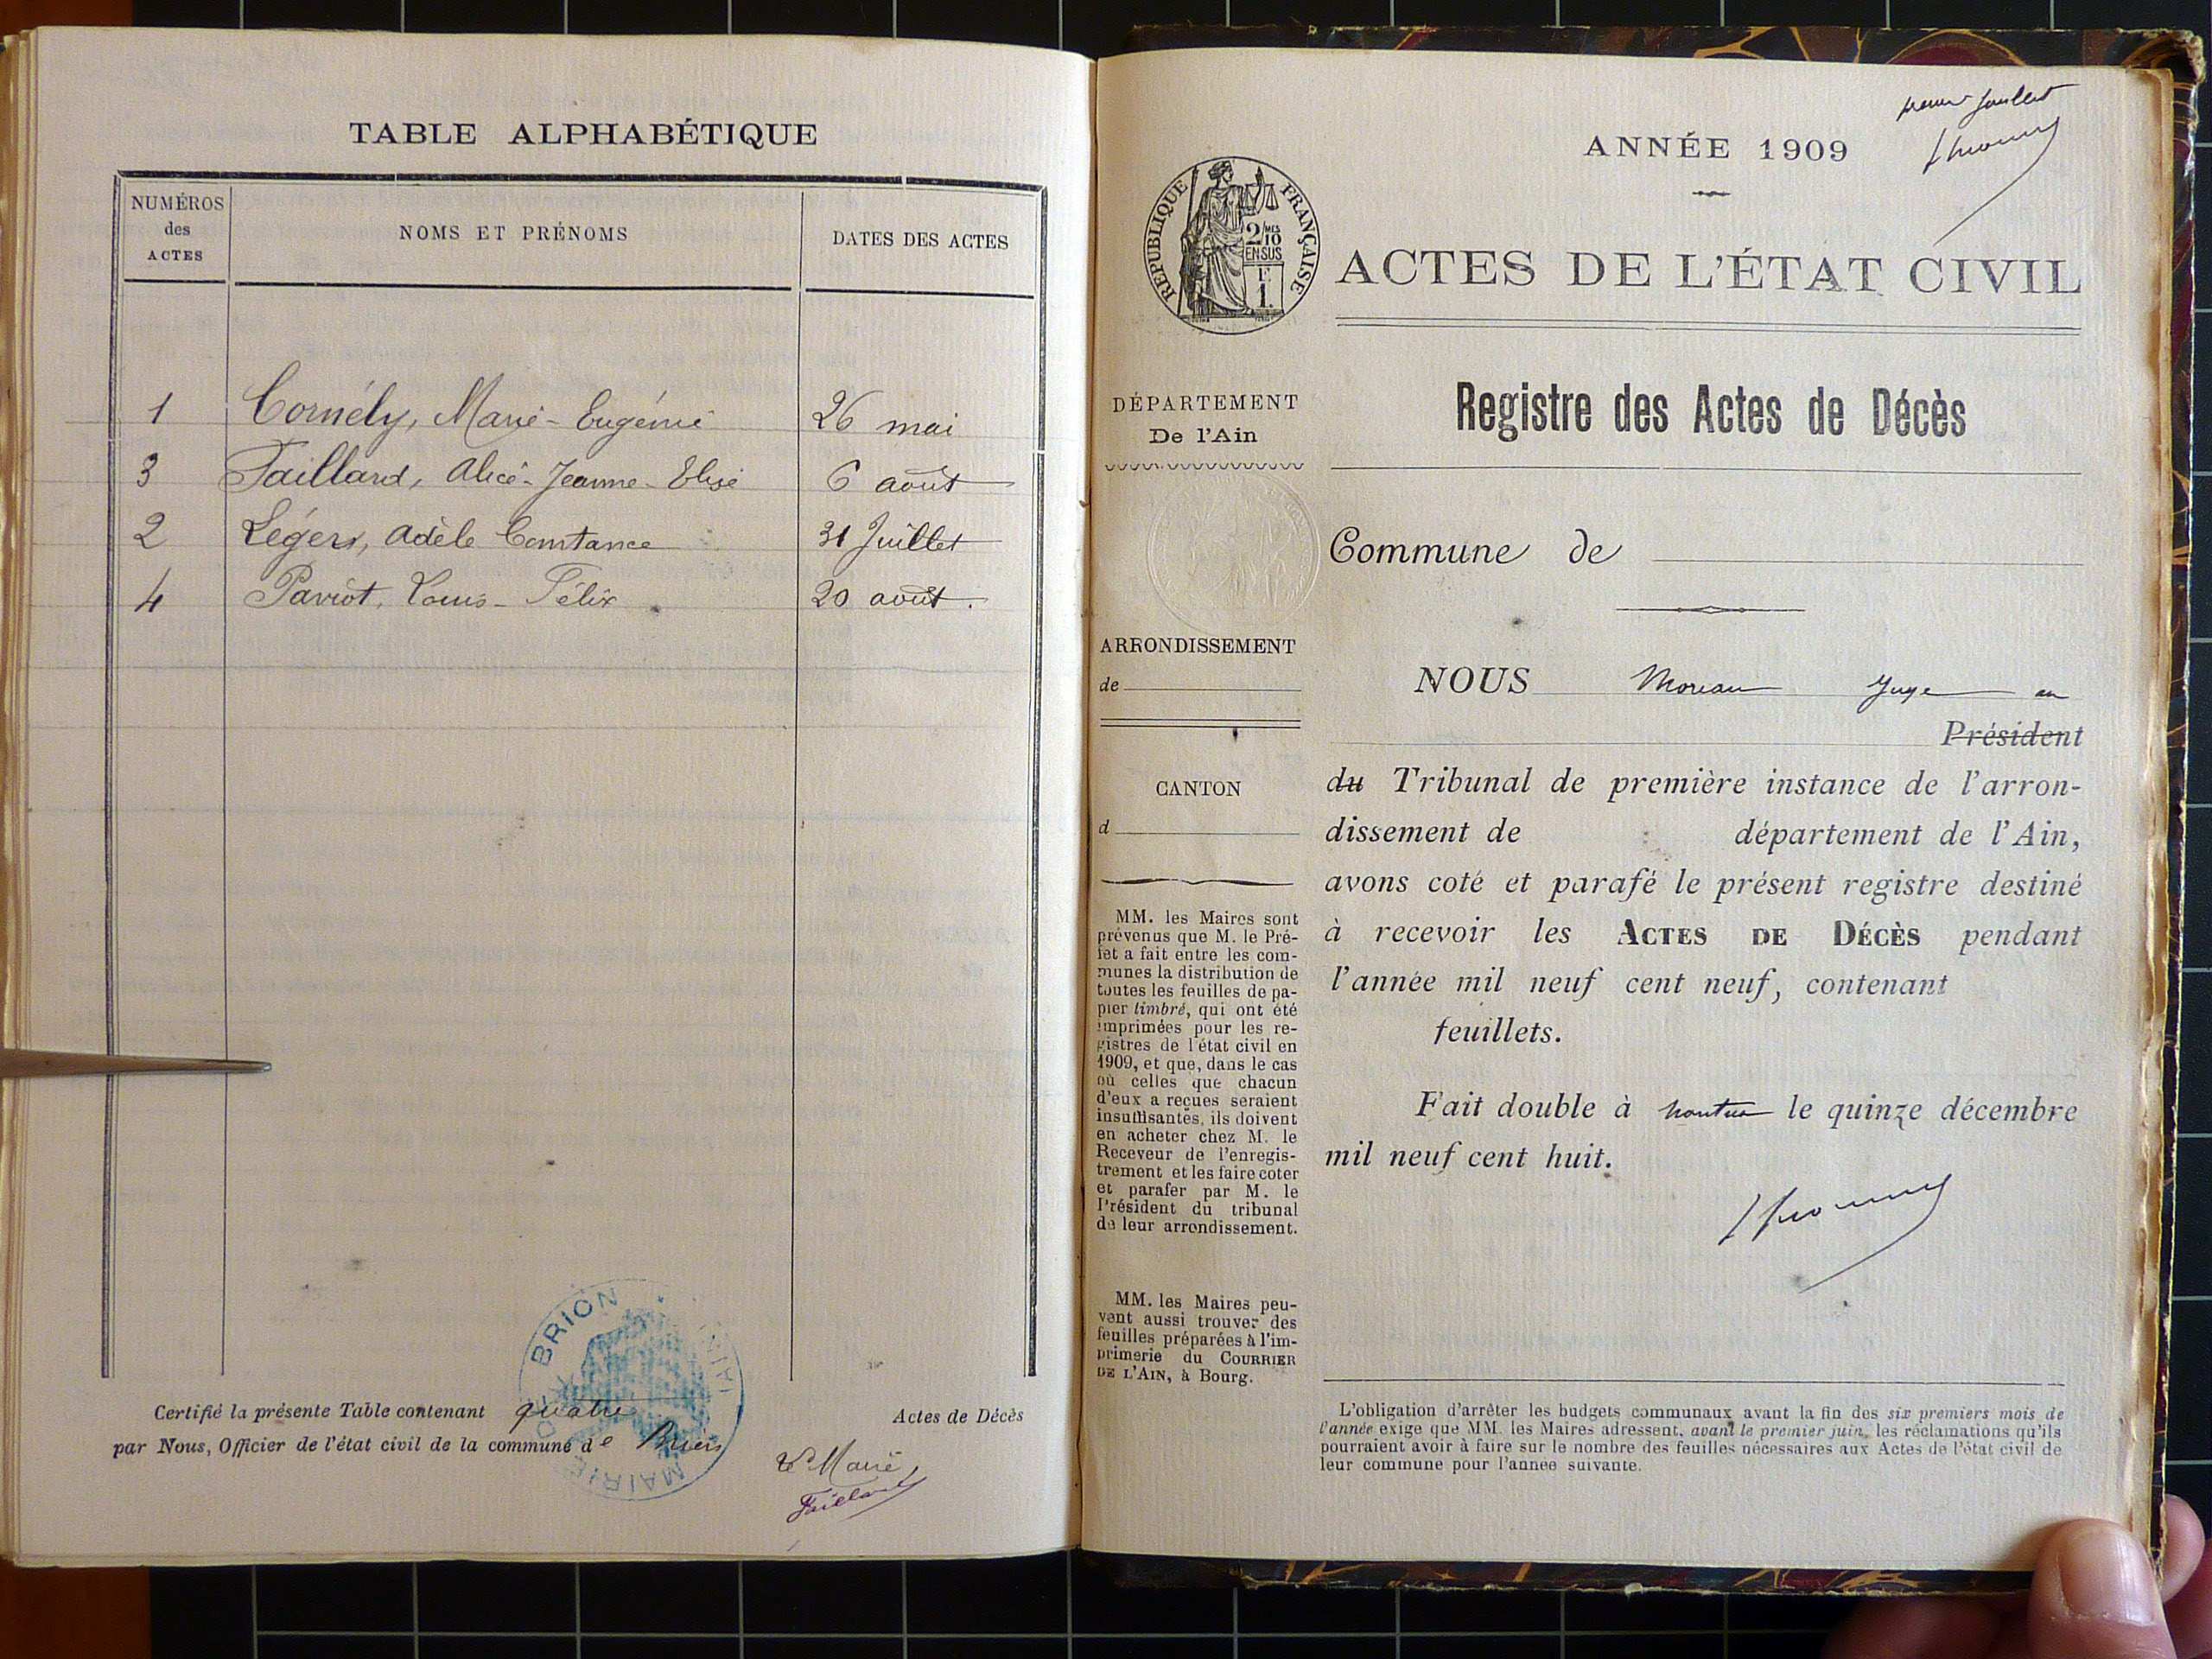 TABLE ALPHABÉTIQUE
NUMÉROS
des
ACTES
NOMS ET PRÉNOMS
DATES DES ACTES
1 Cornély, Marie-Eugénie 26 mai
3 Taillard, Alice-Jeanne-Elise 6 août
2 Légers, Adèle Constance 31 Juillet
4 Paviot, Louis-Félix 20 août.
Certifié la présente Table contenant quatre Actes de Décès
par Nous, Officier de l'état civil de la commune de Brion
Le Maire,
Taillard
MAIRIE DE BRION
AIN
premier feuillet
ANNÉE 1909
RÉPUBLIQUE FRANÇAISE
2/10
MES
EN SUS
1
ACTES DE L'ÉTAT CIVIL
DÉPARTEMENT
De l'Ain
ARRONDISSEMENT
de
CANTON
d
MM. les Maires sont
prévenus que M. le Pré-
fet a fait entre les com-
munes la distribution de
toutes les feuilles de pa-
pier timbré, qui ont été
imprimées pour les re-
gistres de l'état civil en
1909, et que, dans le cas
où celles que chacun
d'eux a reçues seraient
insuffisantes, ils doivent
en acheter chez M. le
Receveur de l'enregis-
trement et les faire coter
et parafer par M. le
Président du tribunal
de leur arrondissement.
MM. les Maires peu-
vent aussi trouver des
feuilles préparées à l'im-
primerie du COURRIER
DE L'AIN, à Bourg.
Registre des Actes de Décès
Commune de
NOUS Moreau Juge au
Président
du Tribunal de première instance de l'arron-
dissement de département de l'Ain,
avons coté et parafé le présent registre destiné
à recevoir les ACTES DE DÉCÈS pendant
l'année mil neuf cent neuf, contenant
feuillets.
Fait double à Nantua le quinze décembre
mil neuf cent huit.
L'obligation d'arrêter les budgets communaux avant la fin des six premiers mois de
l'année exige que MM. les Maires adressent, avant le premier juin, les réclamations qu'ils
pourraient avoir à faire sur le nombre des feuilles nécessaires aux Actes de l'état civil de
leur commune pour l'année suivante.